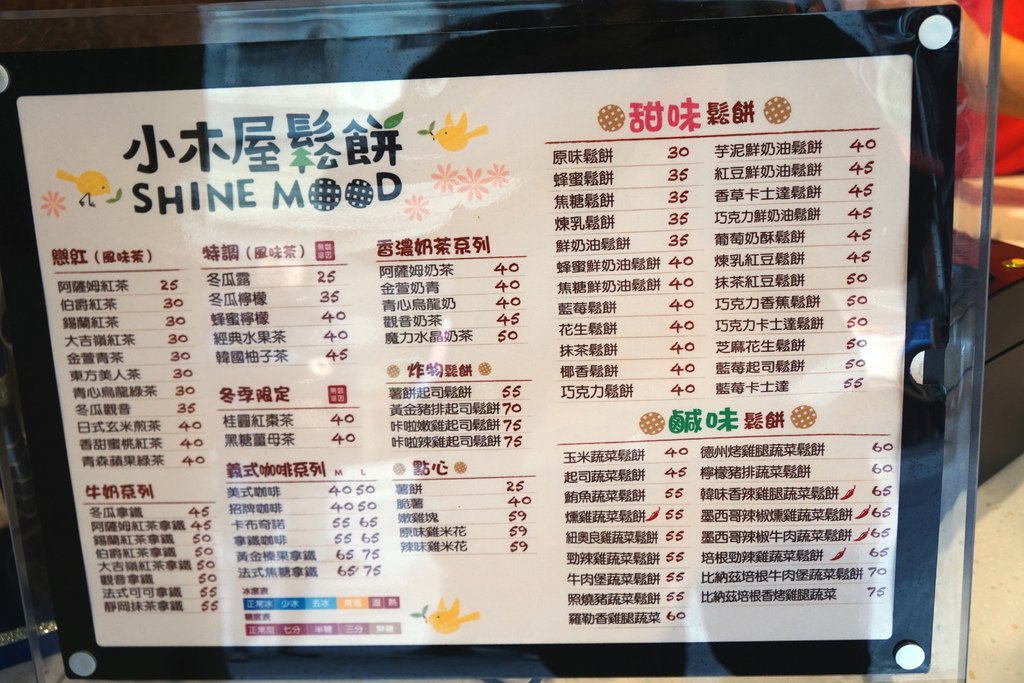 小木屋鬆餅
SHINE MOOD
戀紅（風味茶）
阿薩姆紅茶 25
伯爵紅茶 30
錫蘭紅茶 30
大吉嶺紅茶 30
金萱青茶 30
東方美人茶 30
青心烏龍綠茶 30
冬瓜觀音 35
日式玄米煎茶 40
香甜蜜桃紅茶 40
青森蘋果綠茶 40
牛奶系列
冬瓜拿鐵 45
阿薩姆紅茶拿鐵 45
錫蘭紅茶拿鐵 50
伯爵紅茶拿鐵 50
大吉嶺紅茶拿鐵 50
觀音拿鐵 50
法式可可拿鐵 55
靜岡抹茶拿鐵 55
特調（風味茶）
冬瓜露 25
冬瓜檸檬 35
蜂蜜檸檬 40
經典水果茶 40
韓國柚子茶 45
冬季限定
桂圓紅棗茶 40
黑糖薑母茶 40
義式咖啡系列 M L
美式咖啡 40 50
招牌咖啡 40 50
卡布奇諾 55 65
拿鐵咖啡 55 65
黃金榛果拿鐵 65 75
法式焦糖拿鐵 65 75
冰度表
正常冰 少冰 去冰 常溫 溫 熱
糖度表
正常甜 七分 半糖 三分 無糖
香濃奶茶系列
阿薩姆奶茶 40
金萱奶青 40
青心烏龍奶 40
觀音奶茶 45
魔力水晶奶茶 50
炸物鬆餅
薯餅起司鬆餅 55
黃金豬排起司鬆餅 70
咔啦嫩雞起司鬆餅 75
咔啦辣雞起司鬆餅 75
點心
薯餅 25
脆薯 40
嫩雞塊 59
原味雞米花 59
辣味雞米花 59
甜味鬆餅
原味鬆餅 30
蜂蜜鬆餅 35
焦糖鬆餅 35
煉乳鬆餅 35
鮮奶油鬆餅 35
蜂蜜鮮奶油鬆餅 40
焦糖鮮奶油鬆餅 40
藍莓鬆餅 40
花生鬆餅 40
抹茶鬆餅 40
椰香鬆餅 40
巧克力鬆餅 40
芋泥鮮奶油鬆餅 40
紅豆鮮奶油鬆餅 45
香草卡士達鬆餅 45
巧克力鮮奶油鬆餅 45
葡萄奶酥鬆餅 45
煉乳紅豆鬆餅 45
抹茶紅豆鬆餅 50
巧克力香蕉鬆餅 50
巧克力卡士達鬆餅 50
芝麻花生鬆餅 50
藍莓起司鬆餅 50
藍莓卡士達 55
鹹味鬆餅
玉米蔬菜鬆餅 40
起司蔬菜鬆餅 45
鮪魚蔬菜鬆餅 55
燻雞蔬菜鬆餅 55
紐奧良雞蔬菜鬆餅 55
勁辣雞蔬菜鬆餅 55
牛肉堡蔬菜鬆餅 55
照燒豬蔬菜鬆餅 55
羅勒香雞蔬菜 60
德州烤雞腿蔬菜鬆餅 60
檸檬豬排蔬菜鬆餅 60
韓味香辣雞腿蔬菜鬆餅 65
墨西哥辣椒燻雞蔬菜鬆餅 65
墨西哥辣椒牛肉蔬菜鬆餅 65
培根勁辣雞蔬菜鬆餅 65
比納茲培根牛肉堡蔬菜鬆餅 70
比納茲培根香烤雞腿蔬菜 75